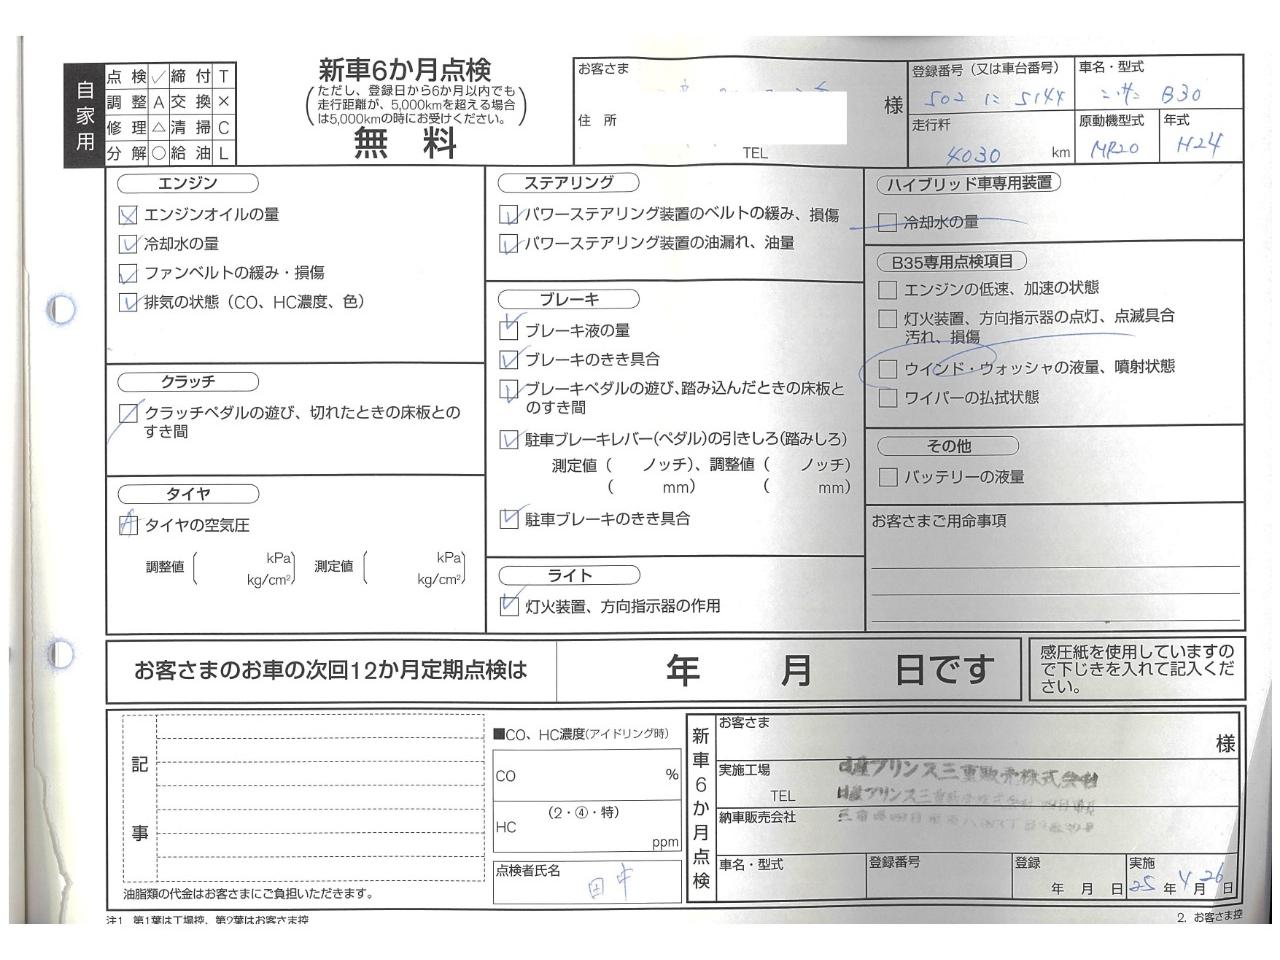 自家用
点検 ✓ 締付 T
調整 A 交換 ×
修理 △ 清掃 C
分解 ○ 給油 L
新車6か月点検
(ただし、登録日から6か月以内でも
走行距離が、5,000kmを超える場合
は5,000kmの時にお受けください。)
無 料
お客さま
様
住 所
TEL
登録番号(又は車台番号)
502 に 5144
車名・型式
B30
走行粁
4030 km
原動機型式
MR20
年式
H24
エンジン
エンジンオイルの量
冷却水の量
ファンベルトの緩み・損傷
排気の状態(CO、HC濃度、色)
クラッチ
クラッチペダルの遊び、切れたときの床板との
すき間
タイヤ
タイヤの空気圧
調整値( kPa kg/cm²) 測定値( kPa kg/cm²)
ステアリング
パワーステアリング装置のベルトの緩み、損傷
パワーステアリング装置の油漏れ、油量
ブレーキ
ブレーキ液の量
ブレーキのきき具合
ブレーキペダルの遊び、踏み込んだときの床板と
のすき間
駐車ブレーキレバー(ペダル)の引きしろ(踏みしろ)
測定値( ノッチ)、調整値( ノッチ)
( mm) ( mm)
駐車ブレーキのきき具合
ライト
灯火装置、方向指示器の作用
ハイブリッド車専用装置
冷却水の量
B35専用点検項目
エンジンの低速、加速の状態
灯火装置、方向指示器の点灯、点滅具合
汚れ、損傷
ウインド・ウォッシャの液量、噴射状態
ワイパーの払拭状態
その他
バッテリーの液量
お客さまご用命事項
お客さまのお車の次回12か月定期点検は 年 月 日です
感圧紙を使用していますの
で下じきを入れて記入くだ
さい。
記事
油脂類の代金はお客さまにご負担いただきます。
■CO、HC濃度(アイドリング時)
CO %
(2・④・特)
HC ppm
点検者氏名
田中
新車6か月点検
お客さま 様
実施工場
TEL
日産プリンス三重販売株式会社
日産プリンス三重販売株式会社
納車販売会社
車名・型式
登録番号
登録 年 月 日
実施 25年 4月 26日
注1. 第1葉は工場控、第2葉はお客さま控
2. お客さま控